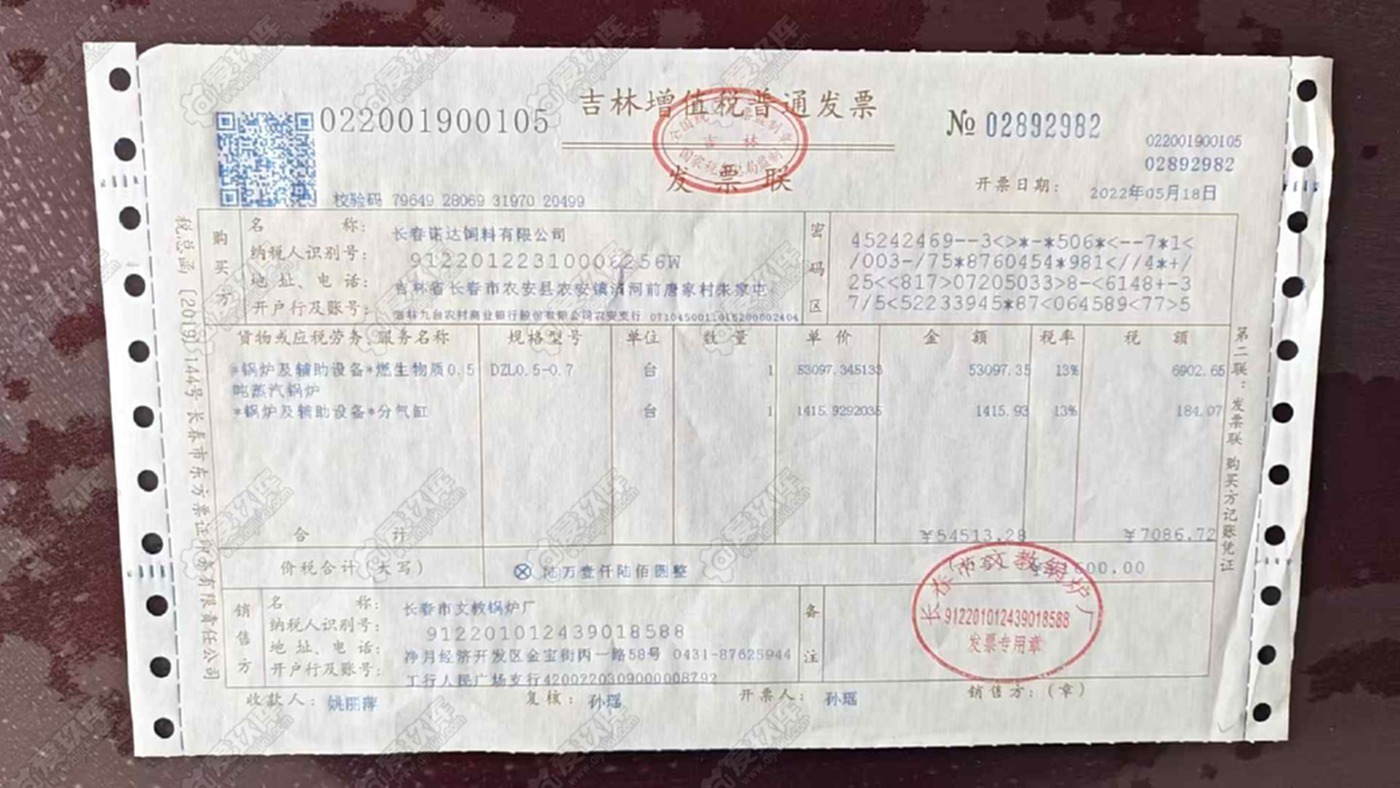 022001900105
吉林增值税普通发票
发票联
№ 02892982
022001900105
02892982
校验码 79649 28069 31970 20499
开票日期： 2022年05月18日
购买方
名　　称： 长春诺达饲料有限公司
纳税人识别号：
地址、电话：
开户行及账号：
密码区
45242469--3<>*-*506*<--7*1<
/003-/75*8760454*981<//4*+/
25<<817>07205033>8-<6148+-3
7/5<52233945*87<064589<77>5
货物或应税劳务、服务名称 规格型号 单位 数量 单价 金额 税率 税额
*锅炉及辅助设备*燃生物质0.5 DZL0.5-0.7 台 1 53097.345133 53097.35 13% 6902.65
吨蒸汽锅炉
*锅炉及辅助设备*分气缸 台 1 1415.9292035 1415.93 13% 184.07
合　　计 ¥54513.28 ¥7086.72
价税合计（大写） ⊗ 陆万壹仟陆佰圆整
销售方
名　　称： 长春市文教锅炉厂
纳税人识别号： 912201012439018588
地址、电话： 净月经济开发区金宝街丙一路58号 0431-87625944
开户行及账号： 工行人民广场支行4200220309000008792
备注
长春市文教锅炉厂
912201012439018588
发票专用章
收款人： 姚丽萍 复核： 孙瑶 开票人： 孙瑶 销售方：（章）
税总函〔2019〕144号 长春市东方票证印务有限责任公司
第二联：发票联 购买方记账凭证